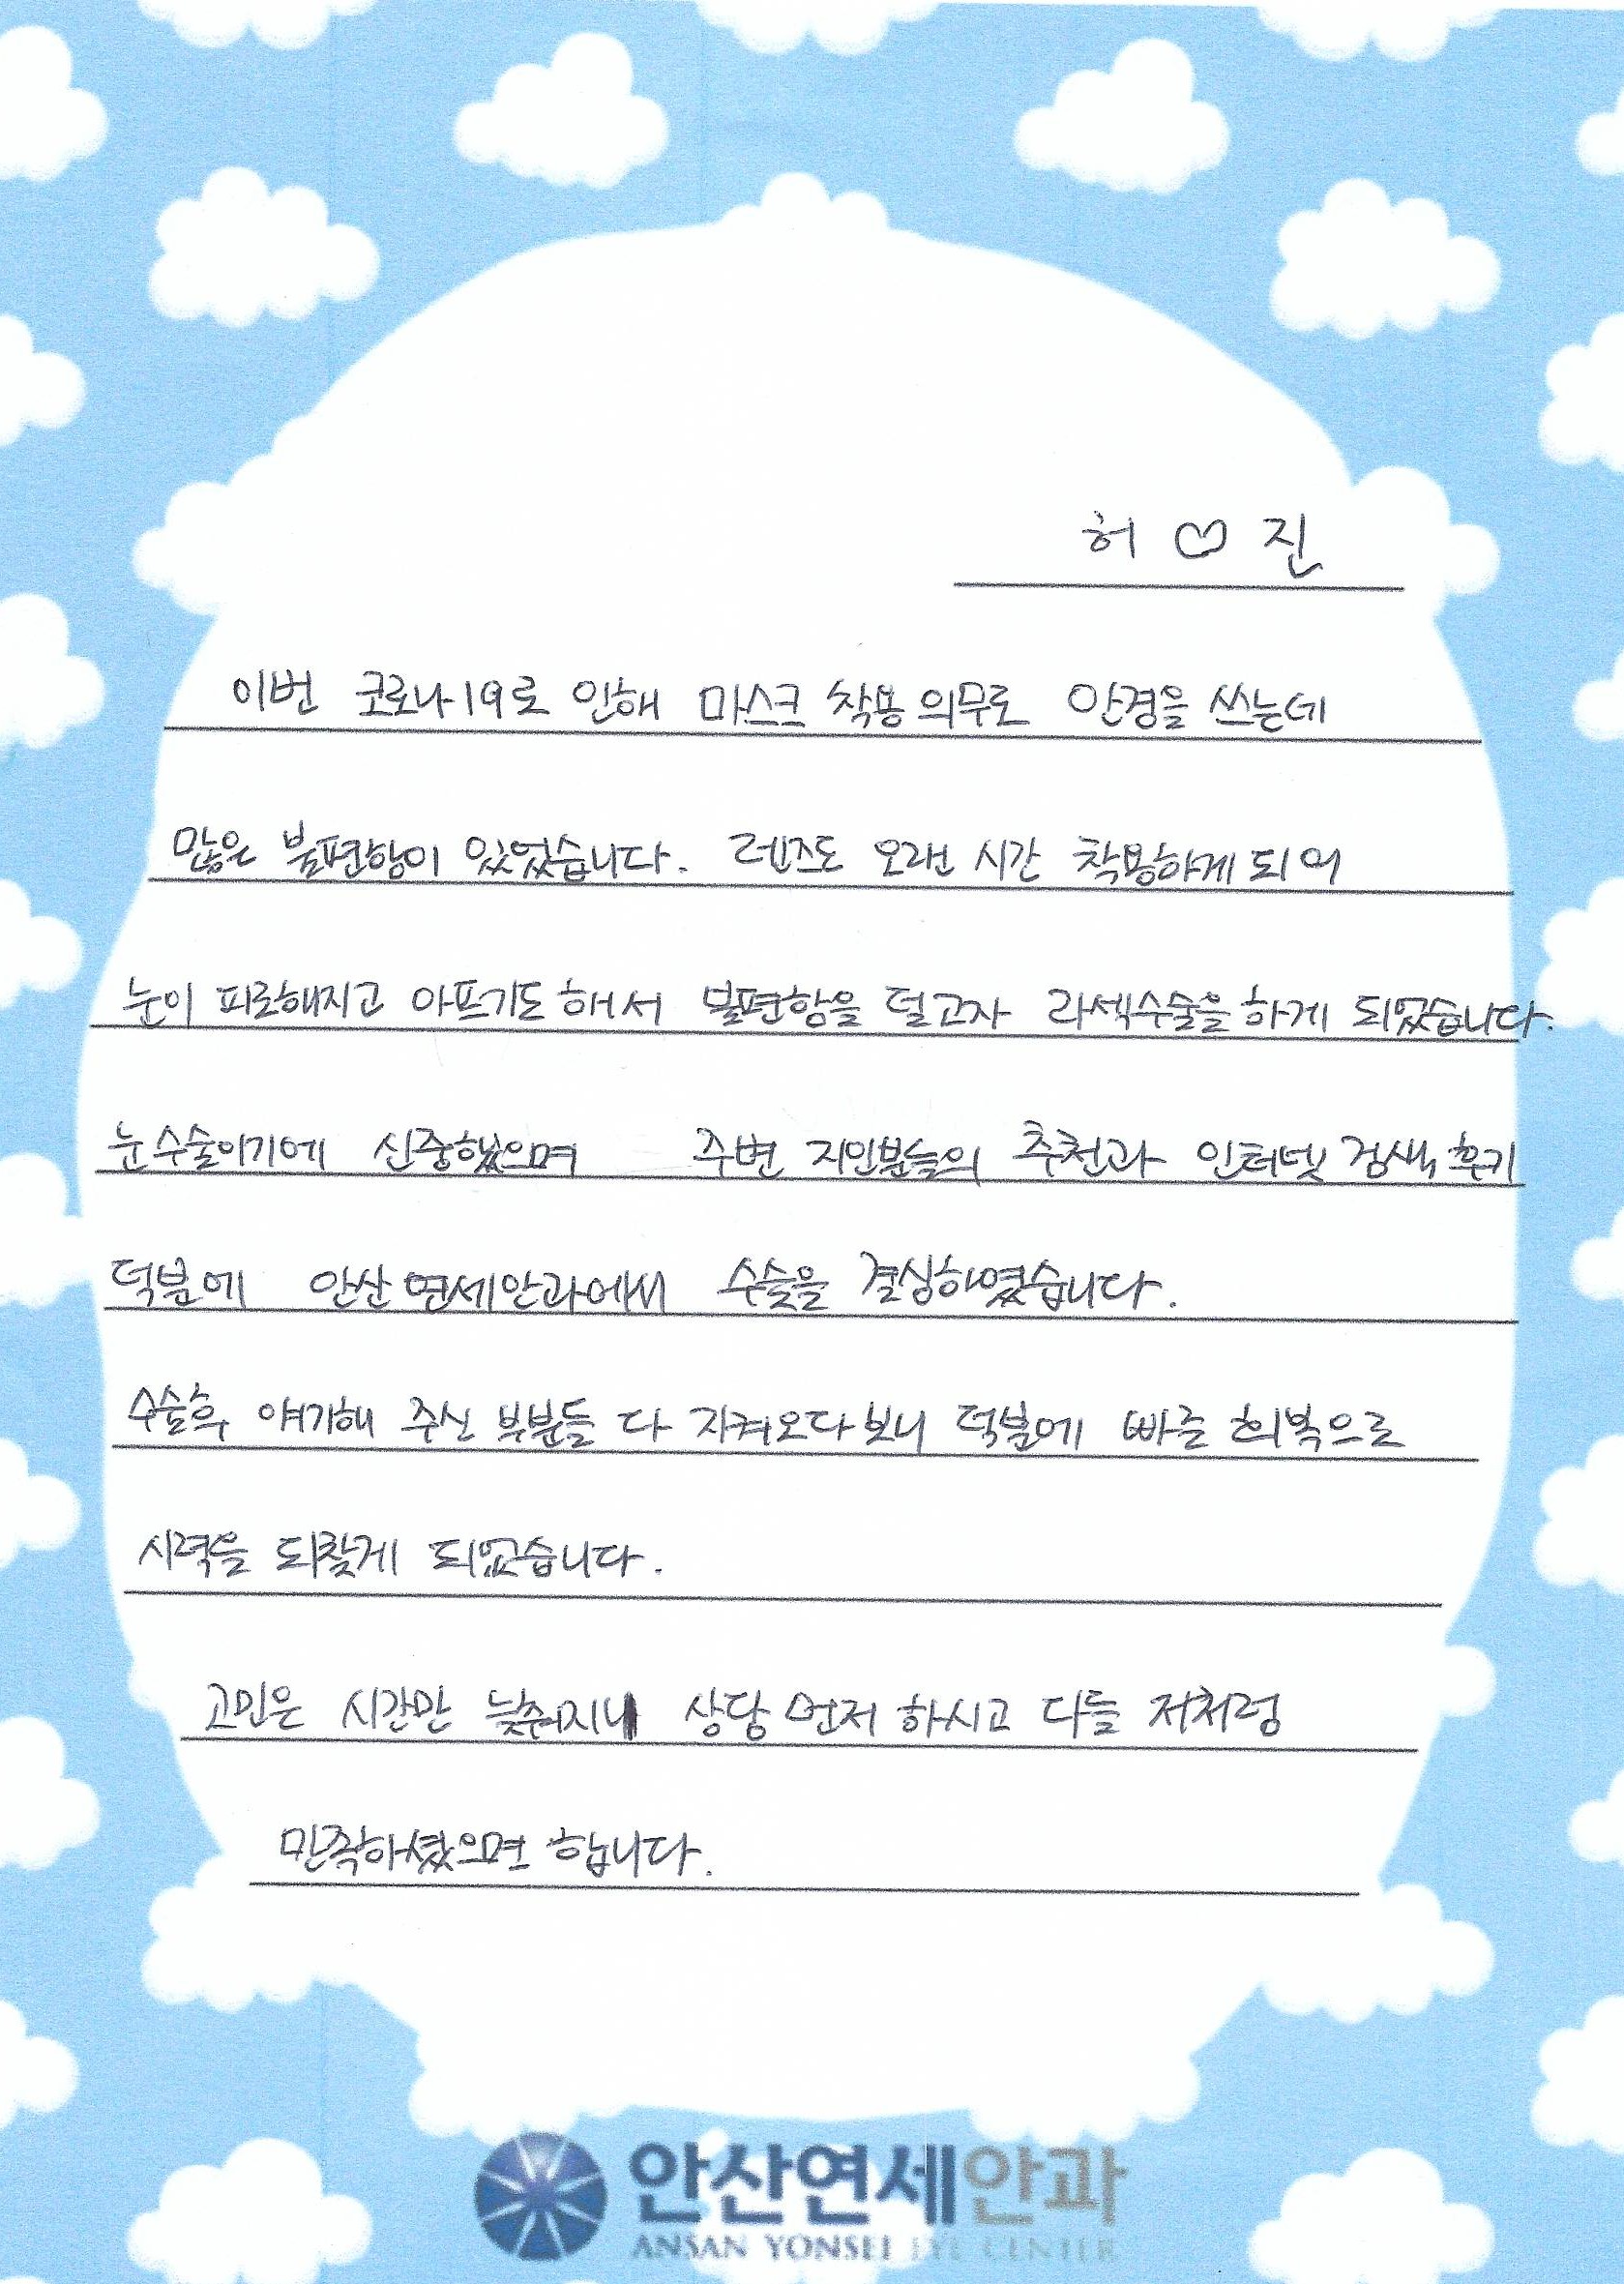 허 ♡ 진
이번 코로나19로 인해 마스크 착용 의무로 안경을 쓰는데
많은 불편함이 있었습니다. 렌즈도 오랜 시간 착용하게 되어
눈이 피로해지고 아프기도 해서 불편함을 덜고자 라섹수술을 하게 되었습니다.
눈수술이기에 신중했으며 주변 지인분들의 추천과 인터넷 검색 후기
덕분에 안산연세안과에서 수술을 결심하였습니다.
수술후 얘기해 주신 부분들 다 지켜오다보니 덕분에 빠른 회복으로
시력을 되찾게 되었습니다.
고민은 시간만 늦춰지니 상담 먼저 하시고 다들 저처럼
만족하셨으면 합니다.
안산연세안과
ANSAN YONSEI EYE CENTER